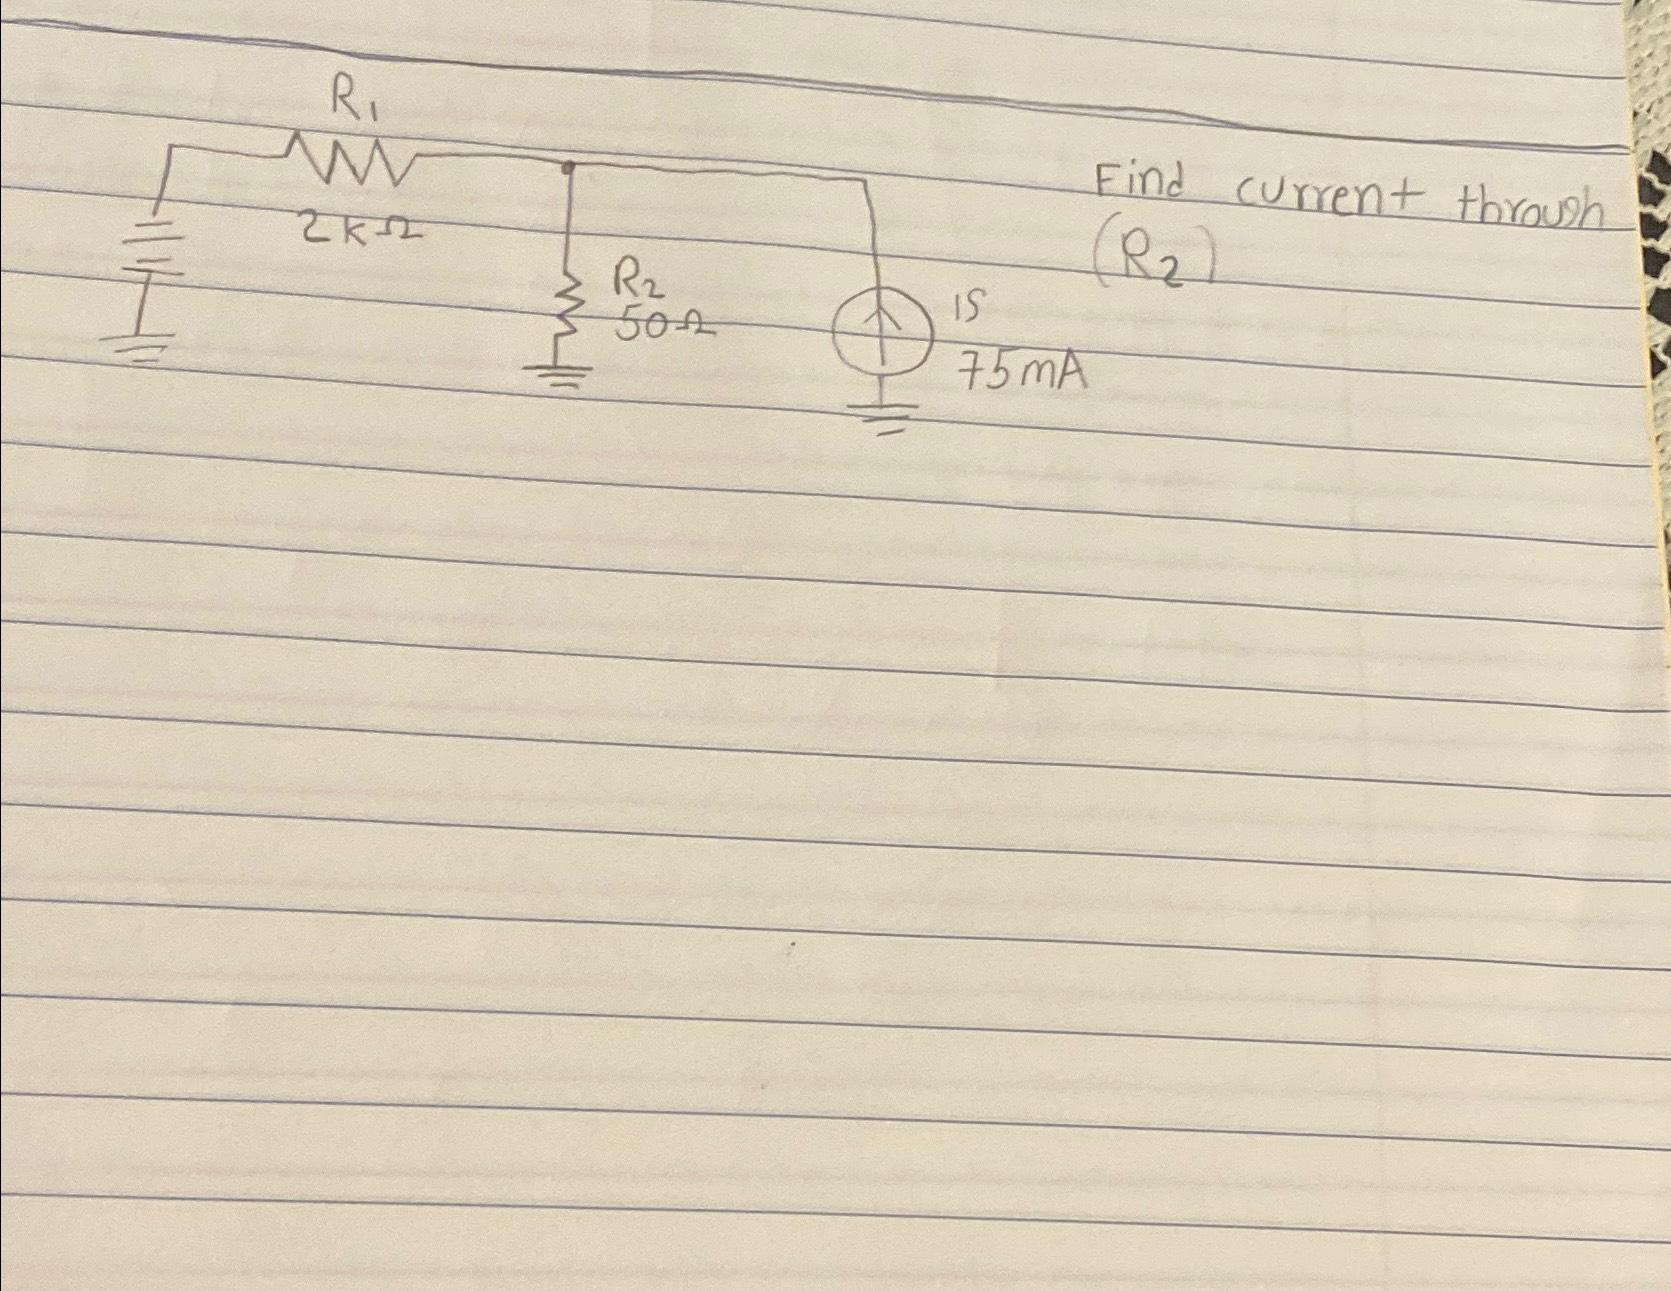 R1
2kΩ
R2
50Ω
IS
75mA
Find current through
(R2)